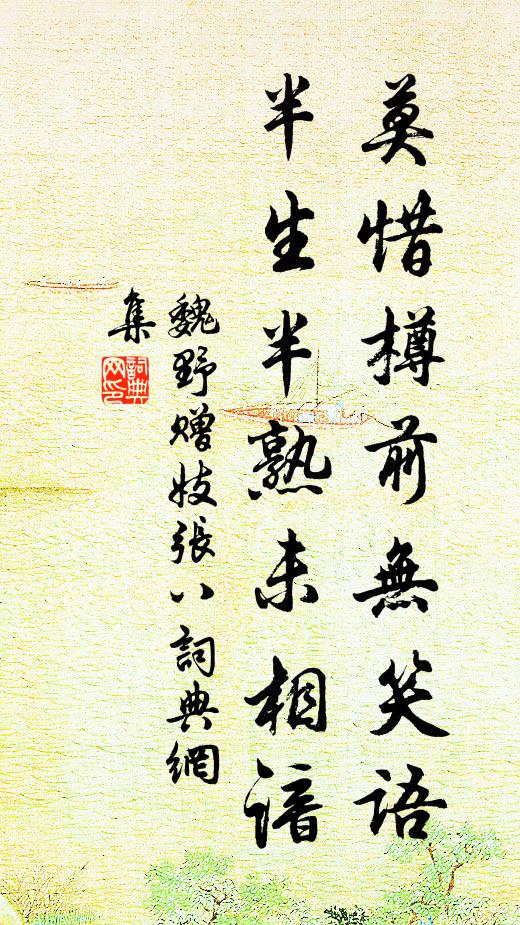 莫惜樽前無笑語
半生半熟未相諳
魏野贈妓張八詞典網
集
詞典
网印